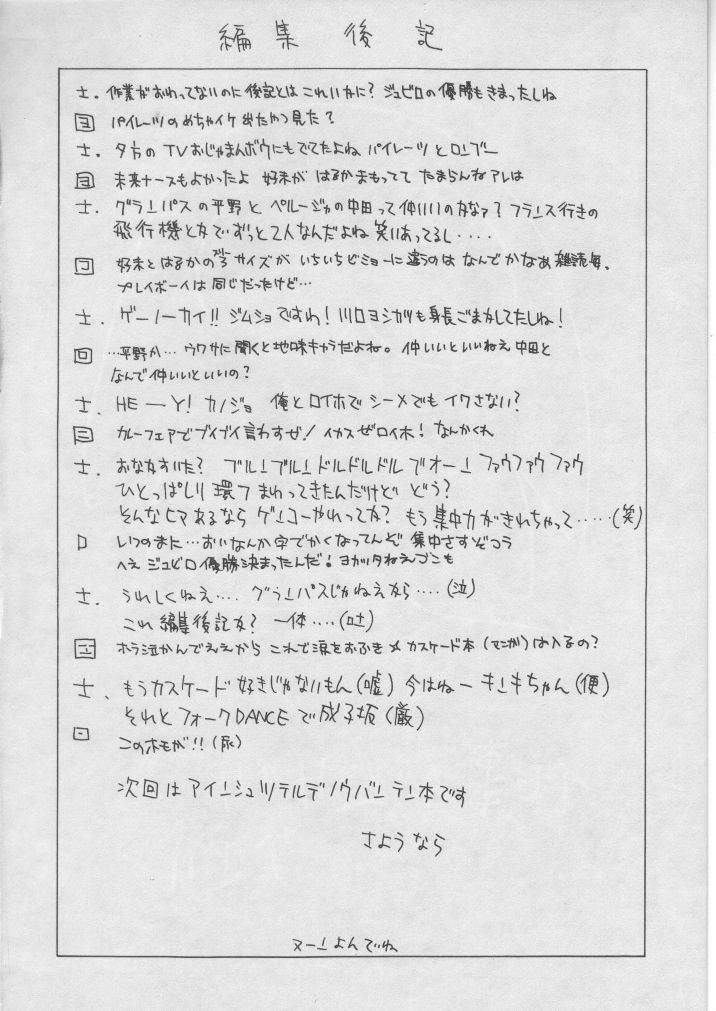 編集後記
士. 作業がおわってないのに後記とはこれいかに? ジュビロの優勝もきまったしね
ヨ パイレーツのめちゃイケ出たやつ見た?
士. 夕方のTVおじゃまんボウにもでてたよね パイレーツとロンブー
ヨ 未来ナースもよかったよ 好未が はるかまもってて たまらんねアレは
士. グランパスの平野とペルージャの中田って仲いいのかなァ? フランス行きの
飛行機とかでずっと2人なんだよね 笑いあってるし・・・・
コ 好未とはるかのサイズが いちいちビミョーに違うのは なんでかなあ 雑誌毎。
プレイボーイは同じだったけど…
士. ゲーノーカイ!! ジムショですわ! 川口ヨシカツも身長ごまかしてたしね!
回 …平野か… ウワサに聞くと地味キャラだよね。仲いいといいねえ 中田と
なんで仲いいといいの?
士. HE―Y! カノジョ 俺とロイホでシーメでもイワさない?
三 カレーフェアでブイブイ言わすぜ! イカスゼロイホ! なんかくれ
士. おなかすいた? ブルンブルンドルドルドルデオーン ファウファウファウ
ひとっぱしり 環7まわってきたんだけど どう?
そんなヒマあるならゲンコーやれってか? もう集中力がきれちゃって・・・・・(笑)
ロ いつのまに…おいなんか字でかくなってんぞ 集中さすぞコラ
へえ ジュビロ優勝決まったんだ! ヨガッタねえゴンも
士. うれしくねえ…. グランパスじゃねえなら・・・・(泣)
これ編集後記か? 一体・・・・(吐)
ホラ泣かんでええから これで涙をおふき メ カスケード本(マンガ)は入るの?
士、もうカスケード好きじゃないもん(嘘) 今はねーキンキちゃん(便)
それとフォークDANCEで成子坂(厳)
このホモが!!(尿)
次回はアインシュツテルデノウバンテン本です
さようなら
ヌーンよんでね